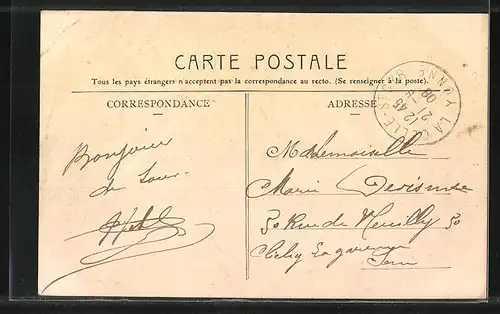 CARTE POSTALE
Tous les pays étrangers n'acceptent pas la correspondance au recto. (Se renseigner à la poste).
CORRESPONDANCE
ADRESSE
LA YONNE
12 45
21 -8
08
Bonjour
de
Mademoiselle
Marie
50 Rue de Neuilly 50
Clichy La garenne